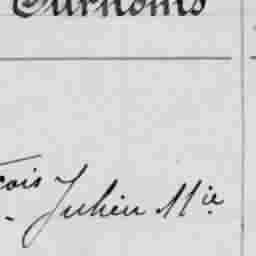 Surnoms
çois Julien Mie